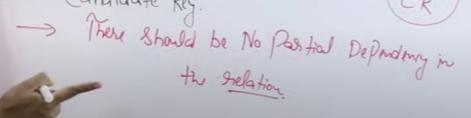 Candidate Key.
→ There should be No Partial Dependency in
the relation.
CK